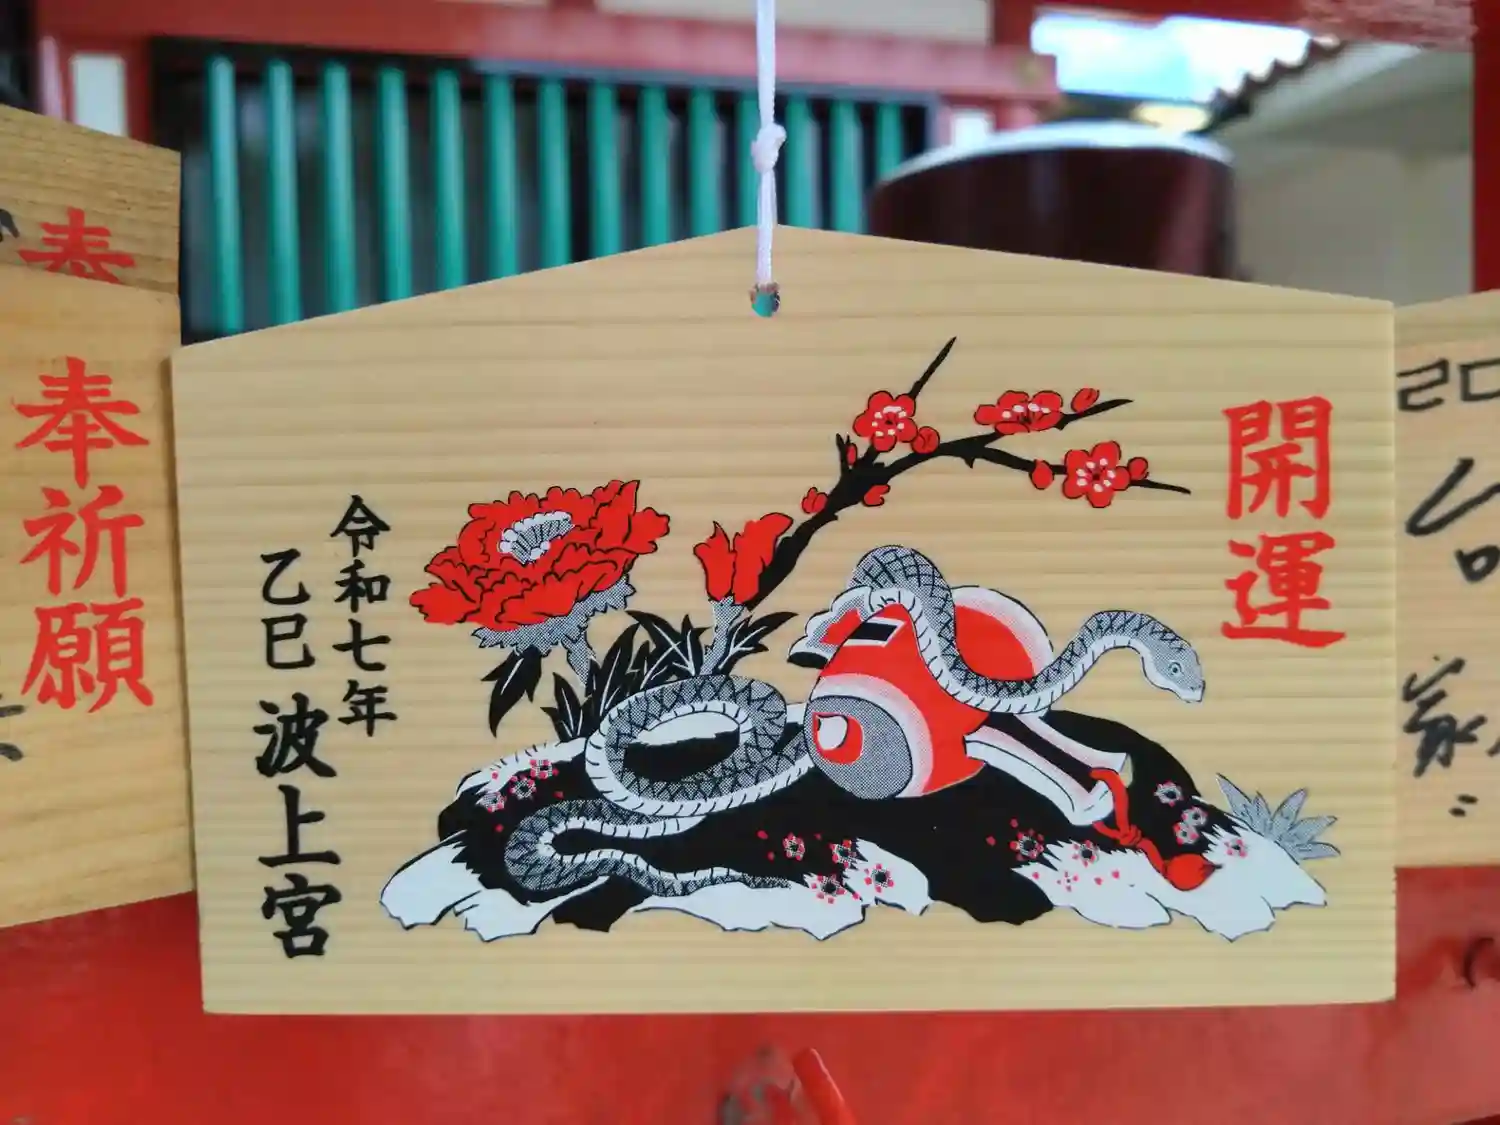 開運
令和七年
乙巳 波上宮
奉祈願
奉
20